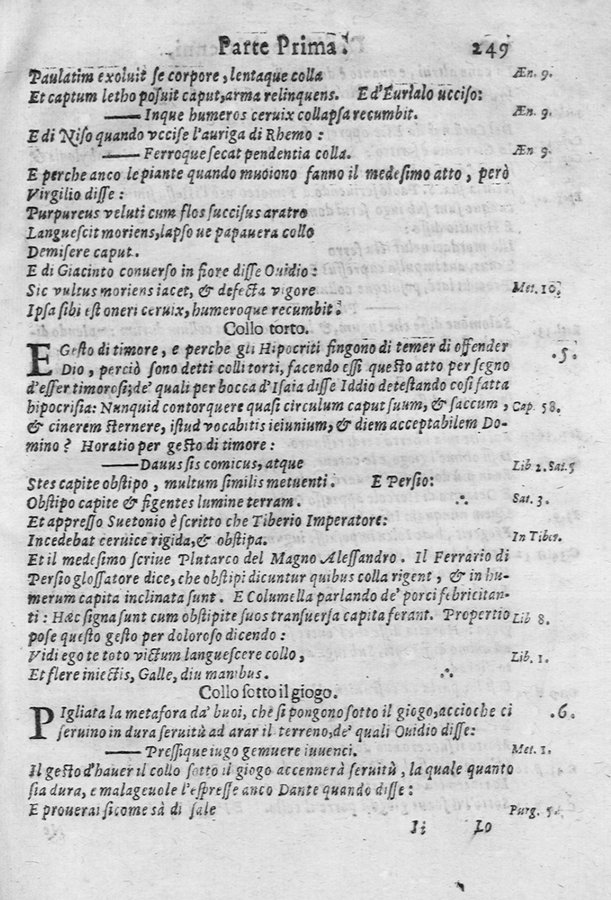 Parte Prima. 249
Paulatim exoluit se corpore, lentaque colla Æn. 9.
Et captum letho posuit caput, arma relinquens. E d'Eurialo ucciso:
—— Inque humeros ceruix collapsa recumbit. Æn. 9.
E di Niso quando vccise l'auriga di Rhemo :
—— Ferroque secat pendentia colla. Æn 9.
E perche anco le piante quando muoiono fanno il medesimo atto , però
Virgilio disse :
Purpureus veluti cum flos succisus aratro
Languescit moriens, lapso ue papauera collo
Demisere caput.
E di Giacinto conuerso in fiore disse Ouidio :
Sic vultus moriens iacet, & defecta vigore Met. 10.
Ipsa sibi est oneri ceruix, humeroque recumbit.
Collo torto.
E Gesto di timore, e perche gli Hipocriti fingono di temer di offender .5.
Dio , perciò sono detti colli torti, facendo essi questo atto per segno
d'esser timorosi; de' quali per bocca d'Isaia disse Iddio detestando cosi fatta
hipocrisia: Nunquid contorquere quasi circulum caput suum, & saccum , Cap. 58.
& cinerem sternere, istud vocabitis ieiunium, & diem acceptabilem Do-
mino ? Horatio per gesto di timore :
—— Dauus sis comicus, atque Lib 2. Sat. 5
Stes capite obstipo , multum similis metuenti . E Persio:
Obstipo capite & figentes lumine terram. ∴ Sat. 3.
Et appresso Suetonio è scritto che Tiberio Imperatore:
Incedebat ceruice rigida, & obstipa. In Tiber.
Et il medesimo scriue Plutarco del Magno Alessandro . Il Ferrario di
Persio glossatore dice, che obstipi dicuntur quibus colla rigent , & in hu-
merum capita inclinata sunt . E Columella parlando de' porci febricitan-
ti : Hæc signa sunt cum obstipite suos transuersa capita ferant. Propertio Lib 8.
pose questo gesto per doloroso dicendo :
Vidi ego te toto victum languescere collo, Lib. 1.
Et flere iniectis, Galle, diu manibus. ∴
Collo sotto il giogo.
PIgliata la metafora da' buoi, che si pongono sotto il giogo, accioche ci .6.
seruino in dura seruitù ad arar il terreno, de' quali Ouidio disse:
—— Pressique iugo gemuere iuuenci. Met. 1.
Il gesto d'hauer il collo sotto il giogo accennerà seruitù , la quale quanto
sia dura, e malageuole l'espresse anco Dante quando disse :
E prouerai sicome sà di sale Purg. 5.
Ii Lo